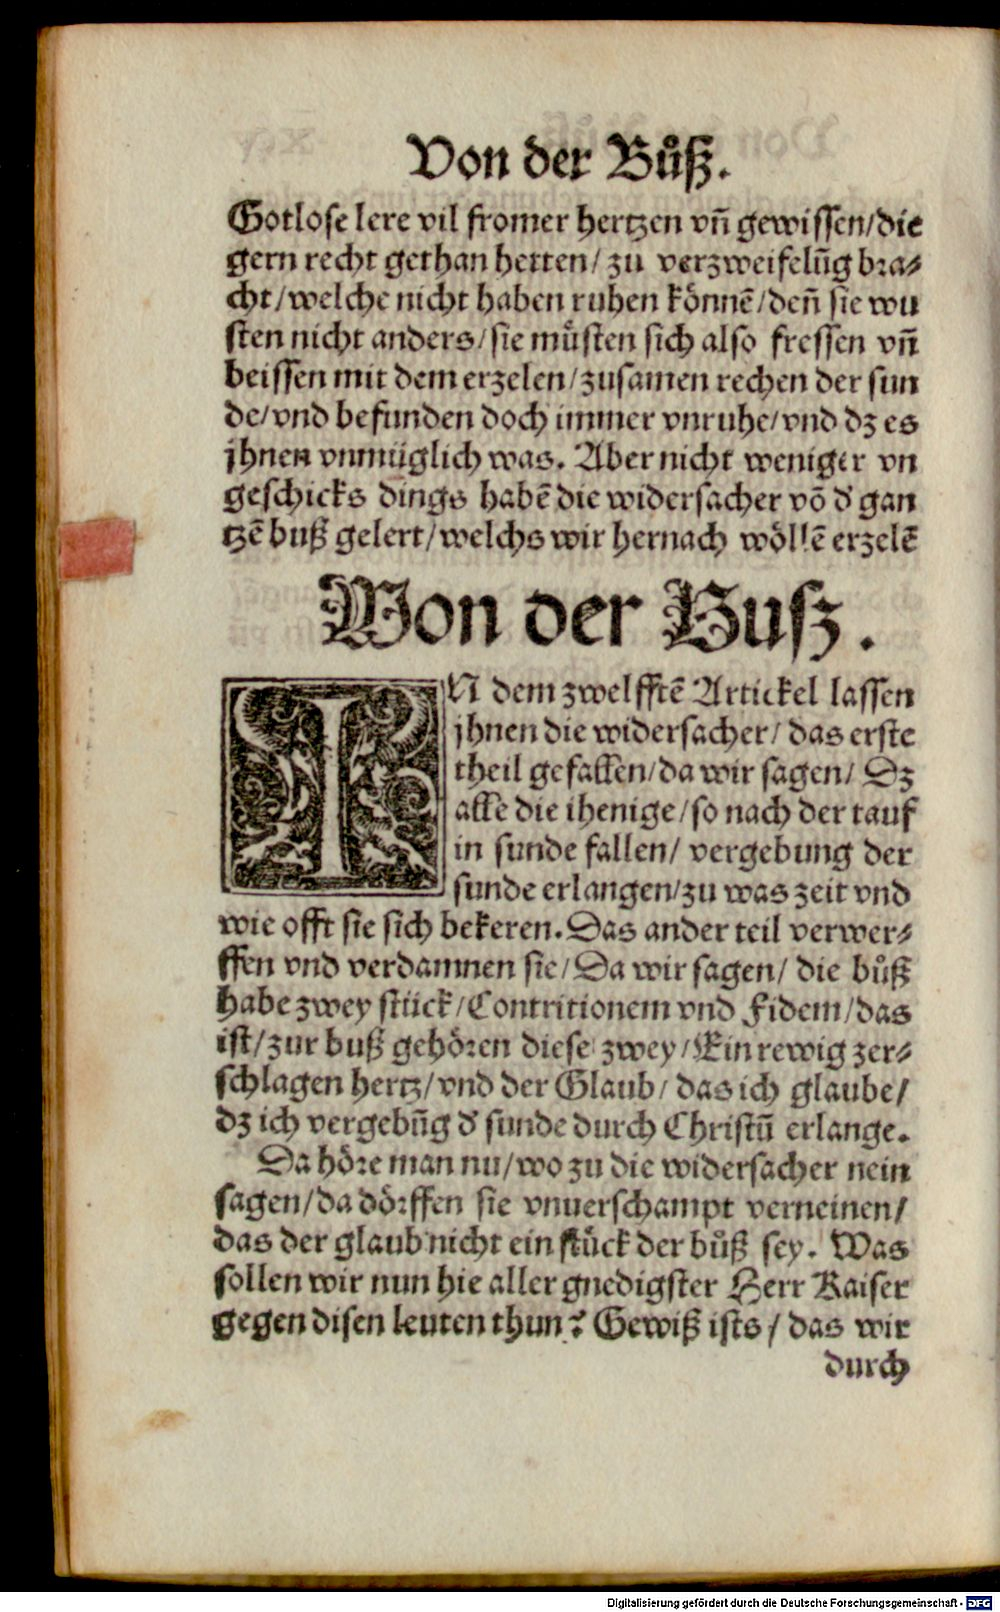 Von der Bůß.
Gotlose lere vil fromer hertzen vñ gewissen/die
gern recht gethan hetten/ zu verzweifelũg bra⸗
cht/welche nicht haben ruhen kônnẽ/deñ sie wu
sten nicht anders/sie můsten sich also fressen vñ
beissen mit dem erzelen/zusamen rechen der sun
de/vnd befunden doch immer vnruhe/vnd dz es
jhnen vnmüglich was. Aber nicht weniger vn
geschicks dings habẽ die widersacher võ d' gan
tzẽ buß gelert/welchs wir hernach wöllẽ erzelẽ
Von der Busz.
IN dem zwelfftẽ Artickel lassen
jhnen die widersacher/ das erste
theil gefallen/da wir sagen/ Dz
alle die ihenige/so nach der tauf
in sunde fallen/ vergebung der
sunde erlangen/zu was zeit vnd
wie offt sie sich bekeren. Das ander teil verwer⸗
ffen vnd verdamnen sie/ Da wir sagen/ die bůß
habe zwey stück/Contritionem vnd Fidem/das
ist/zur buß gehören diese zwey/Ein rewig zer⸗
schlagen hertz/vnd der Glaub/ das ich glaube/
dz ich vergebũg d' sunde durch Christũ erlange.
Da höre man nu/wo zu die widersacher nein
sagen/da dörffen sie vnuerschampt verneinen/
das der glaub nicht ein stůck der bůß sey. Was
sollen wir nun hie aller gnedigster Herr Kaiser
gegen disen leuten thun? Gewiß ists/ das wir
durch
Digitalisierung gefördert durch die Deutsche Forschungsgemeinschaft - DFG